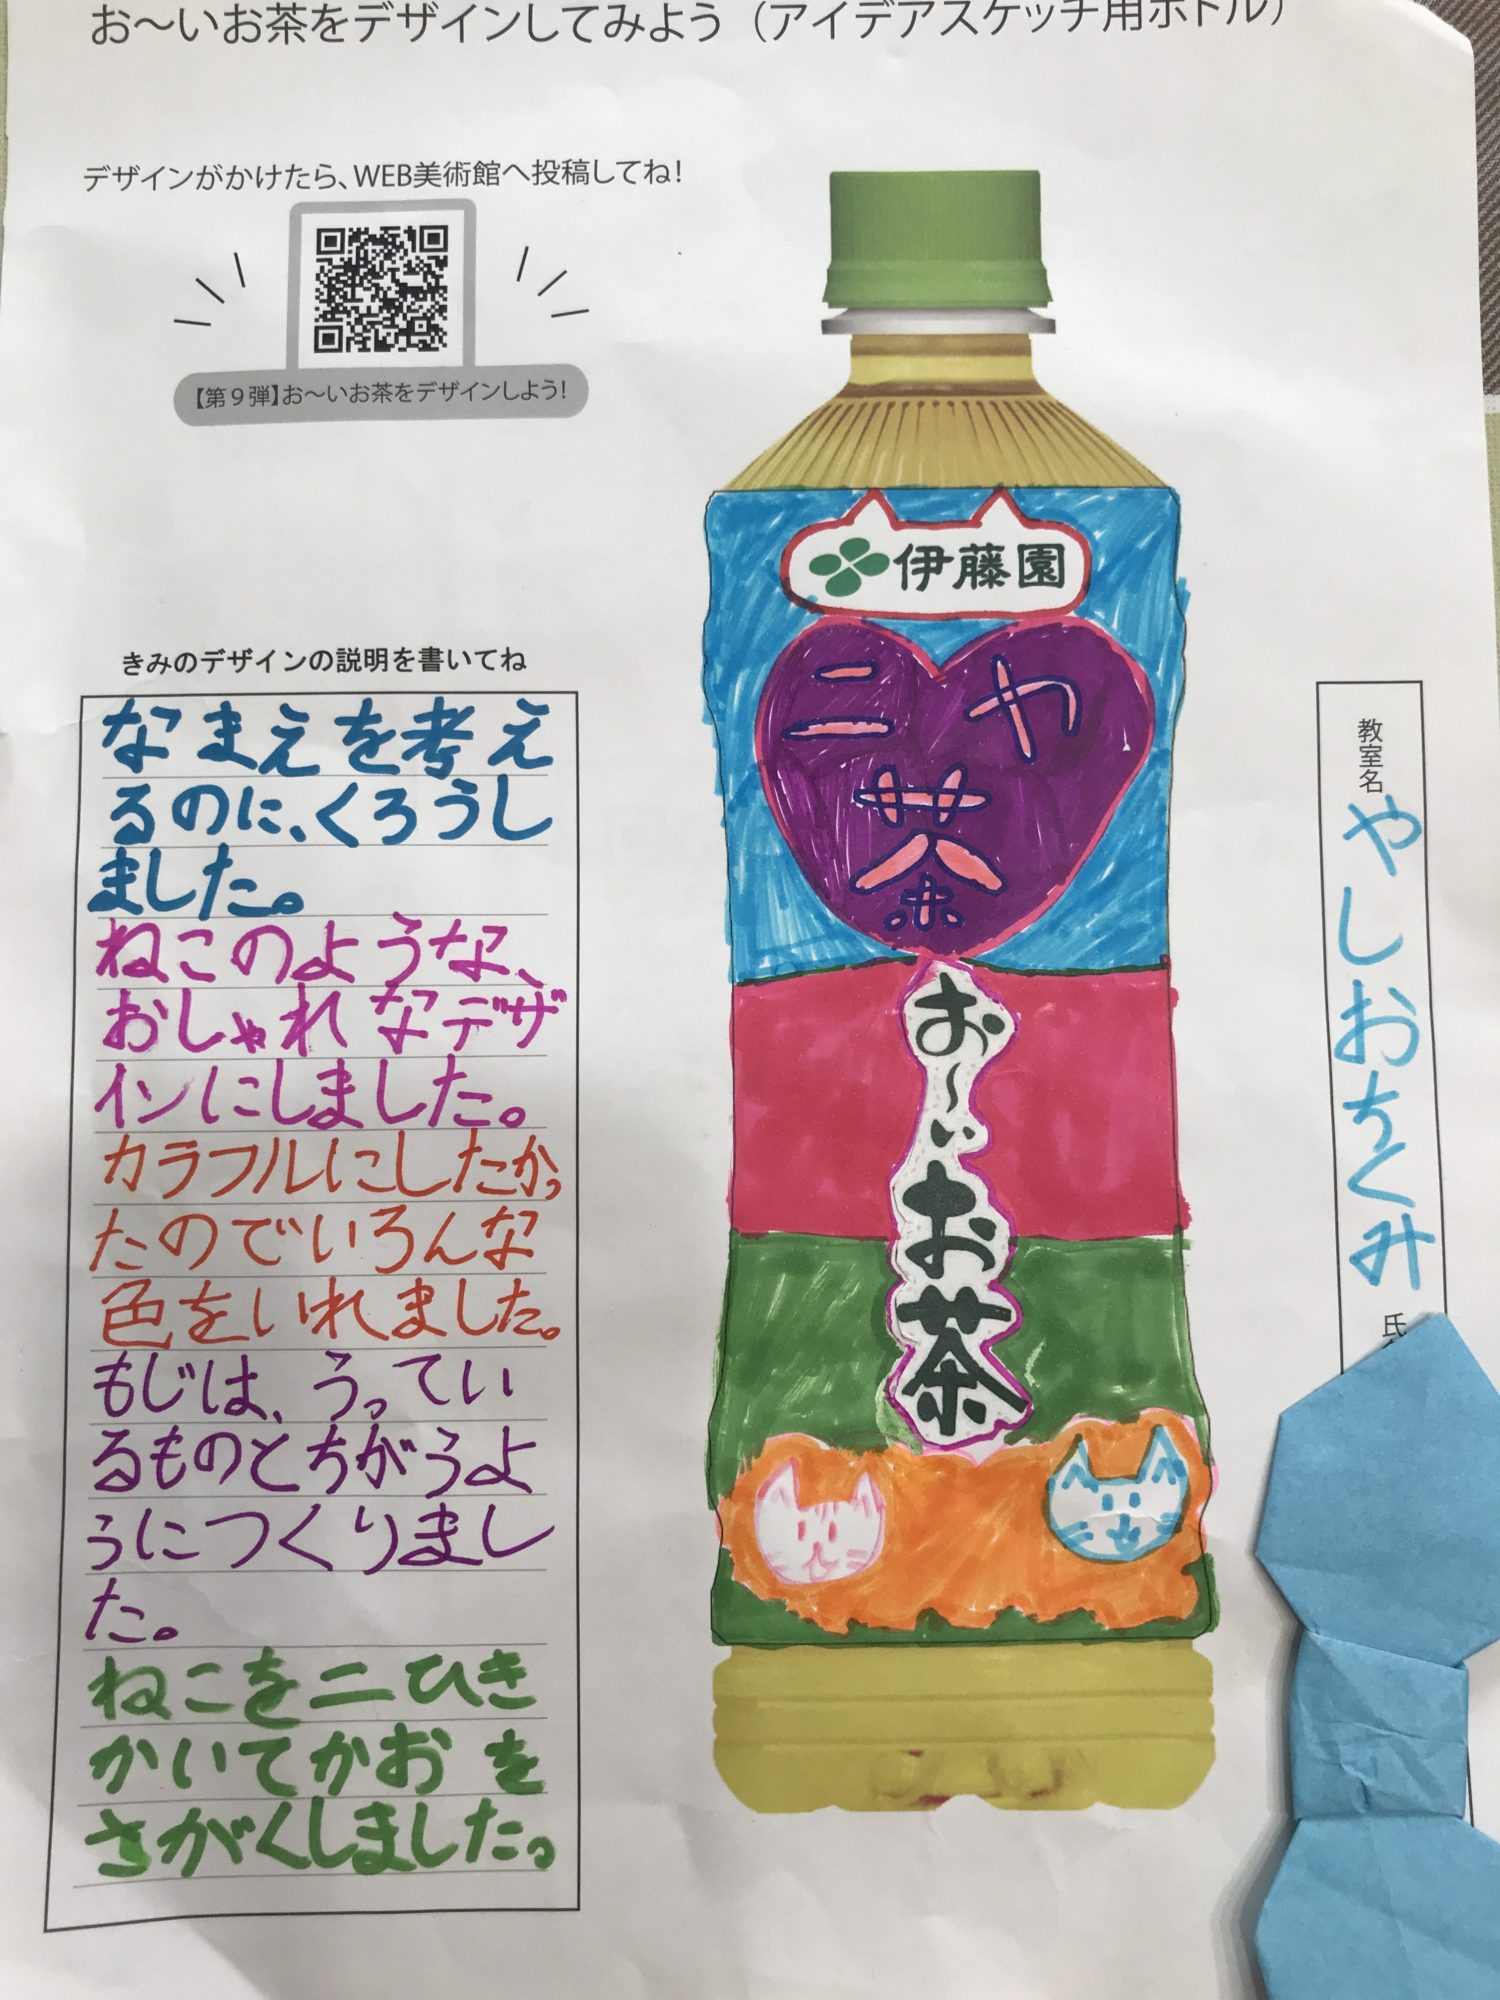 お〜いお茶をデザインしてみよう（アイデアスケッチ用ボトル）
デザインがかけたら、WEB美術館へ投稿してね！
【第９弾】お〜いお茶をデザインしよう！
きみのデザインの説明を書いてね
なまえを考え
るのに、くろうし
ました。
ねこのような、
おしゃれなデザ
インにしました。
カラフルにしたかっ
たのでいろんな
色をいれました。
もじは、うってい
るものとちがうよ
うにつくりまし
た。
ねこを二ひき
かいてかおを
さがくしました。
伊藤園
ニャ
茶
お〜いお茶
教室名
やしおちくみ
氏